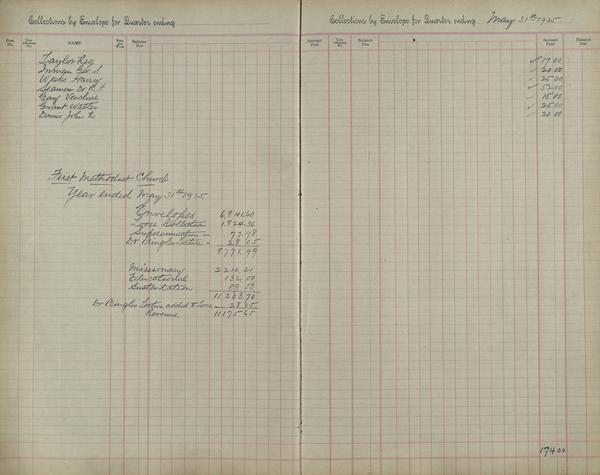 Collections by Envelope for Quarter ending
NAME
Balance Due
Taylor Reg
Inman Geo. S
Weeks Harry
Seamen Dr
Gay
Grant Walter
Dennis John
First Methodist Church
Year ended May 31st 1925
Envelopes 6841.60
Loose Collection 1824.36
Superannuation - 77.98
Dr Pringles Lecture - 28 05
8771.99
Missionary 2210.21
Educational 132 00
Sustentation 89 50
11203 70
Dr. Pringles Lecture added to Loose 28 05
Revenue 11175 65
Collections by Envelope for Quarter ending May 31st 1925
Amount Paid
Balance Due
Amount Paid
Balance Due
✓ 17 00
✓ 20 00
✓ 25 00
✓ 52 00
✓ 15 00
✓ 25 00
✓ 20 00
174 00